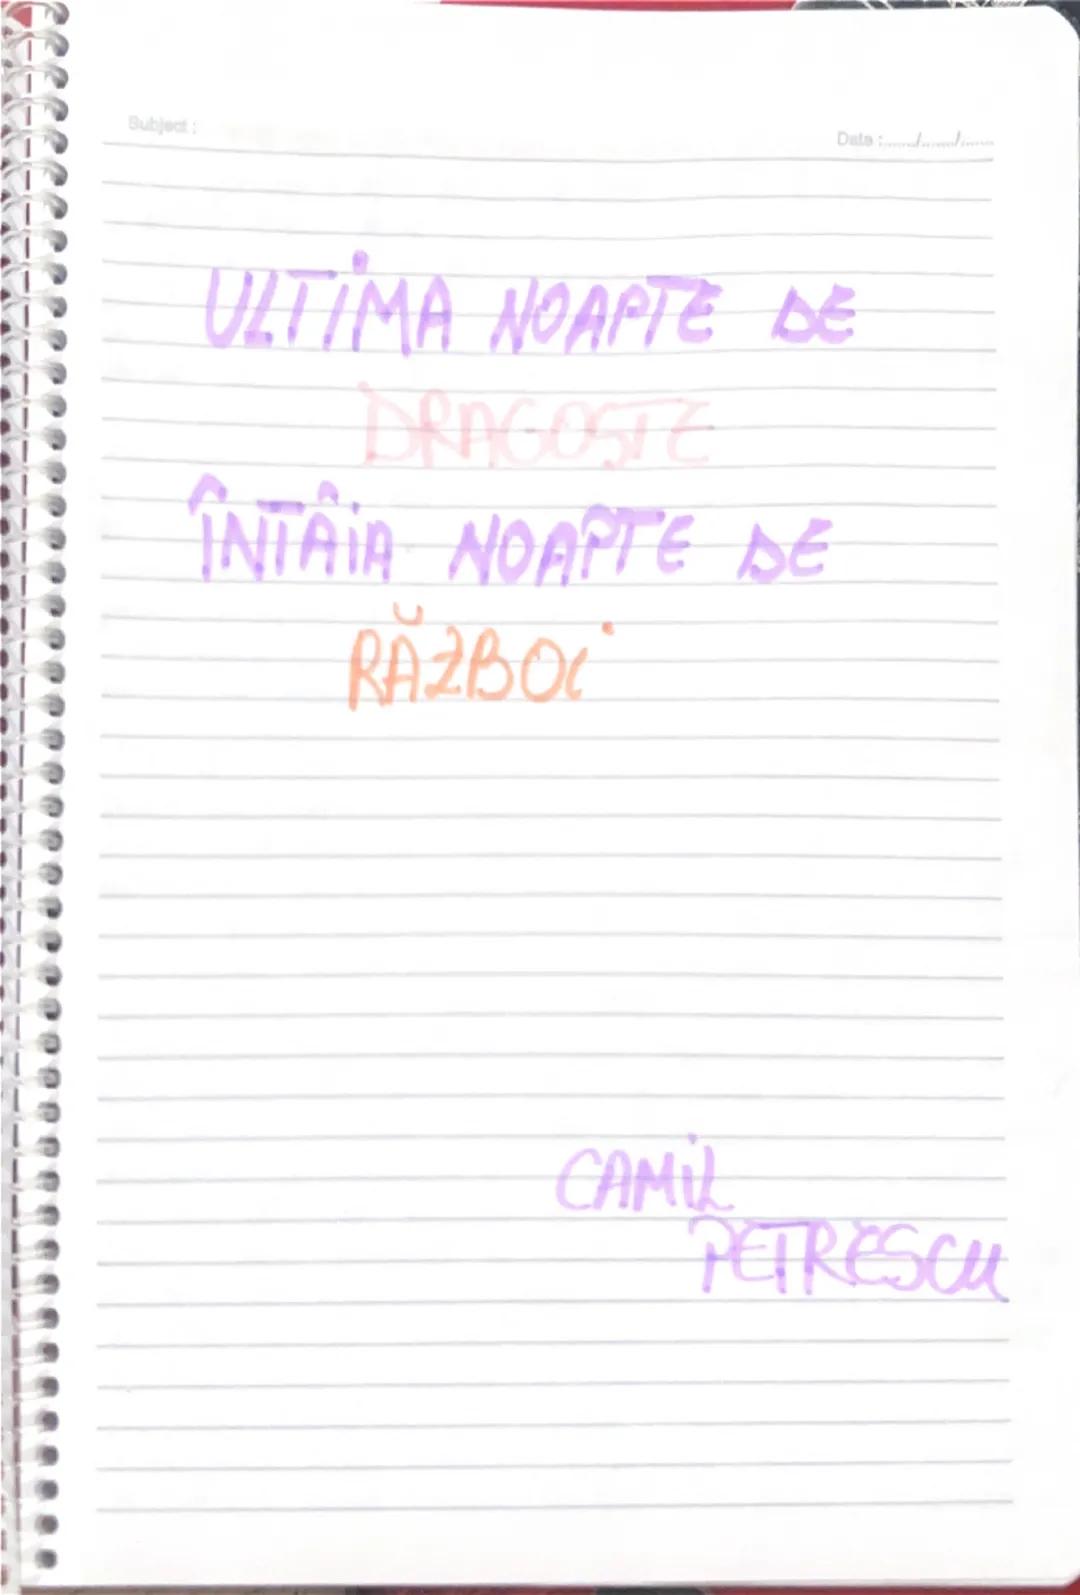 Subject :
Date :....../....../......
ULTIMA NOAPTE DE
DRAGOSTE
ÎNTÂIA NOAPTE DE
RĂZBOI
CAMIL
PETRESCU